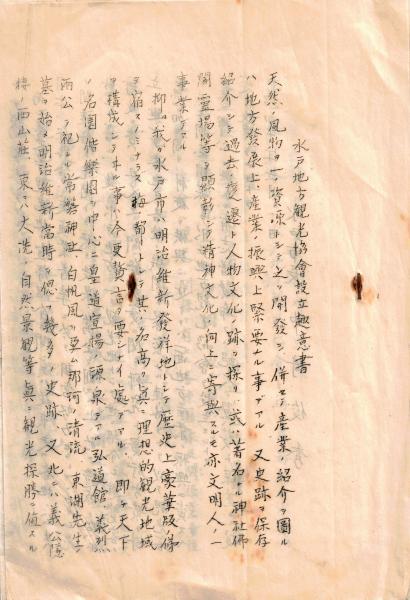 水戸地方観光協會設立趣意書
天然ノ風物ヲ一資源トシテ之ヲ開發シ併セテ産業ノ紹介ヲ圖ル
ハ地方發展上、産業ノ振興上緊要ナル事デアル 又史跡ヲ保存
紹介シテ過去ノ人物文化ノ跡ヲ探リ 或ハ著名ナル神社佛
閣霊場等ヲ顕彰シテ精神文化ノ向上ニ寄與スルモ亦文明人ノ一
事業デアル
抑々我ガ水戸市ハ明治維新發祥地トシテ歴史上豪華版
ヲ宿スノミナラズ梅ノ都トシテ其ノ名高ク真ニ理想的観光地域
ヲ構成シテヰル事ハ今更贅言ヲ要シナイ處デアル 即チ天下
ノ名園偕樂園ヲ中心ニ皇道宣揚ノ源泉デアル弘道館 義烈
両公ヲ祀レル常磐神社、白帆風ヲ孕ム那珂ノ清流 東湖先生ノ
墓ヲ始メ明治維新當時ヲ偲ブ数多ノ史跡、又北ニハ義公隠
棲ノ西山荘 東ニハ大洗ノ自然ノ景観等眞ニ観光探勝ニ値スル